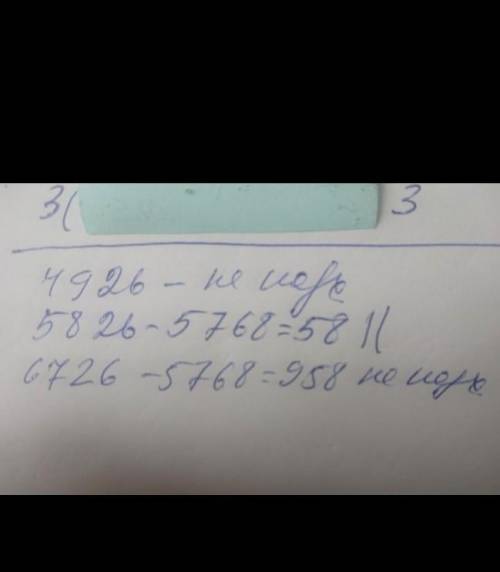 3( 3
4926 - не подх
5826 - 5768 = 58 ||
6726 - 5768 = 958 не подх